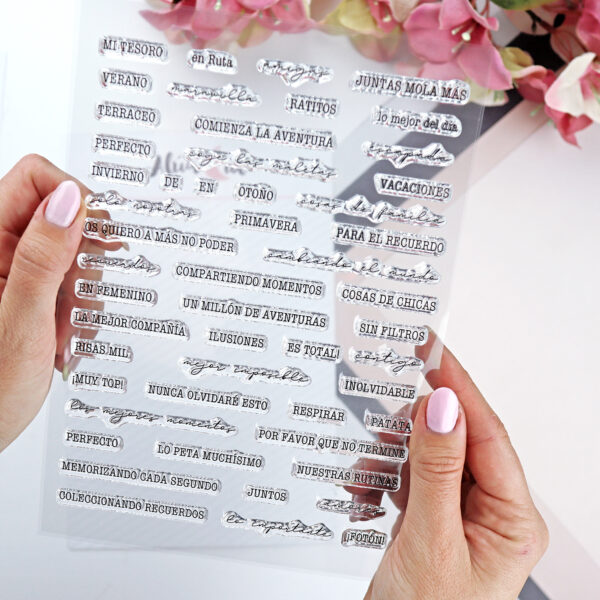 MI TESORO
en Ruta
amigas
JUNTAS MOLA MÁS
VERANO
maravilla
RATITOS
lo mejor del día
TERRACEO
COMIENZA LA AVENTURA
escapada
PERFECTO
coge las maletas
VACACIONES
INVIERNO
DE
EN
OTOÑO
cosas de familia
solo nosotros
PRIMAVERA
OS QUIERO A MÁS NO PODER
PARA EL RECUERDO
COMPARTIENDO MOMENTOS
EN FEMENINO
COSAS DE CHICAS
UN MILLÓN DE AVENTURAS
LA MEJOR COMPAÑÍA
SIN FILTROS
ILUSIONES
ES TOTAL!
contigo
RISAS MIL
mejor imposible
INOLVIDABLE
¡MUY TOP!
NUNCA OLVIDARÉ ESTO
RESPIRAR
PATATA
los mejores momentos
POR FAVOR QUE NO TERMINE
PERFECTO
LO PETA MUCHÍSIMO
NUESTRAS RUTINAS
MEMORIZANDO CADA SEGUNDO
JUNTOS
COLECCIONANDO RECUERDOS
lo importante
¡FOTÓN!